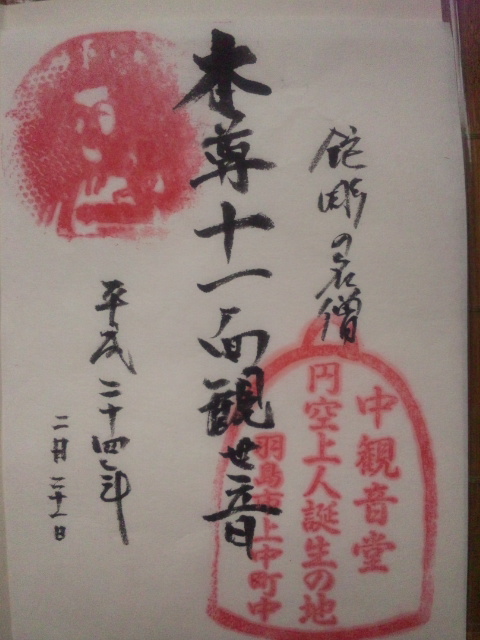 鉈彫の名僧
本尊十一面観世音
平成二十四年
二月二十一日
中観音堂
円空上人誕生の地
羽島市上中町中